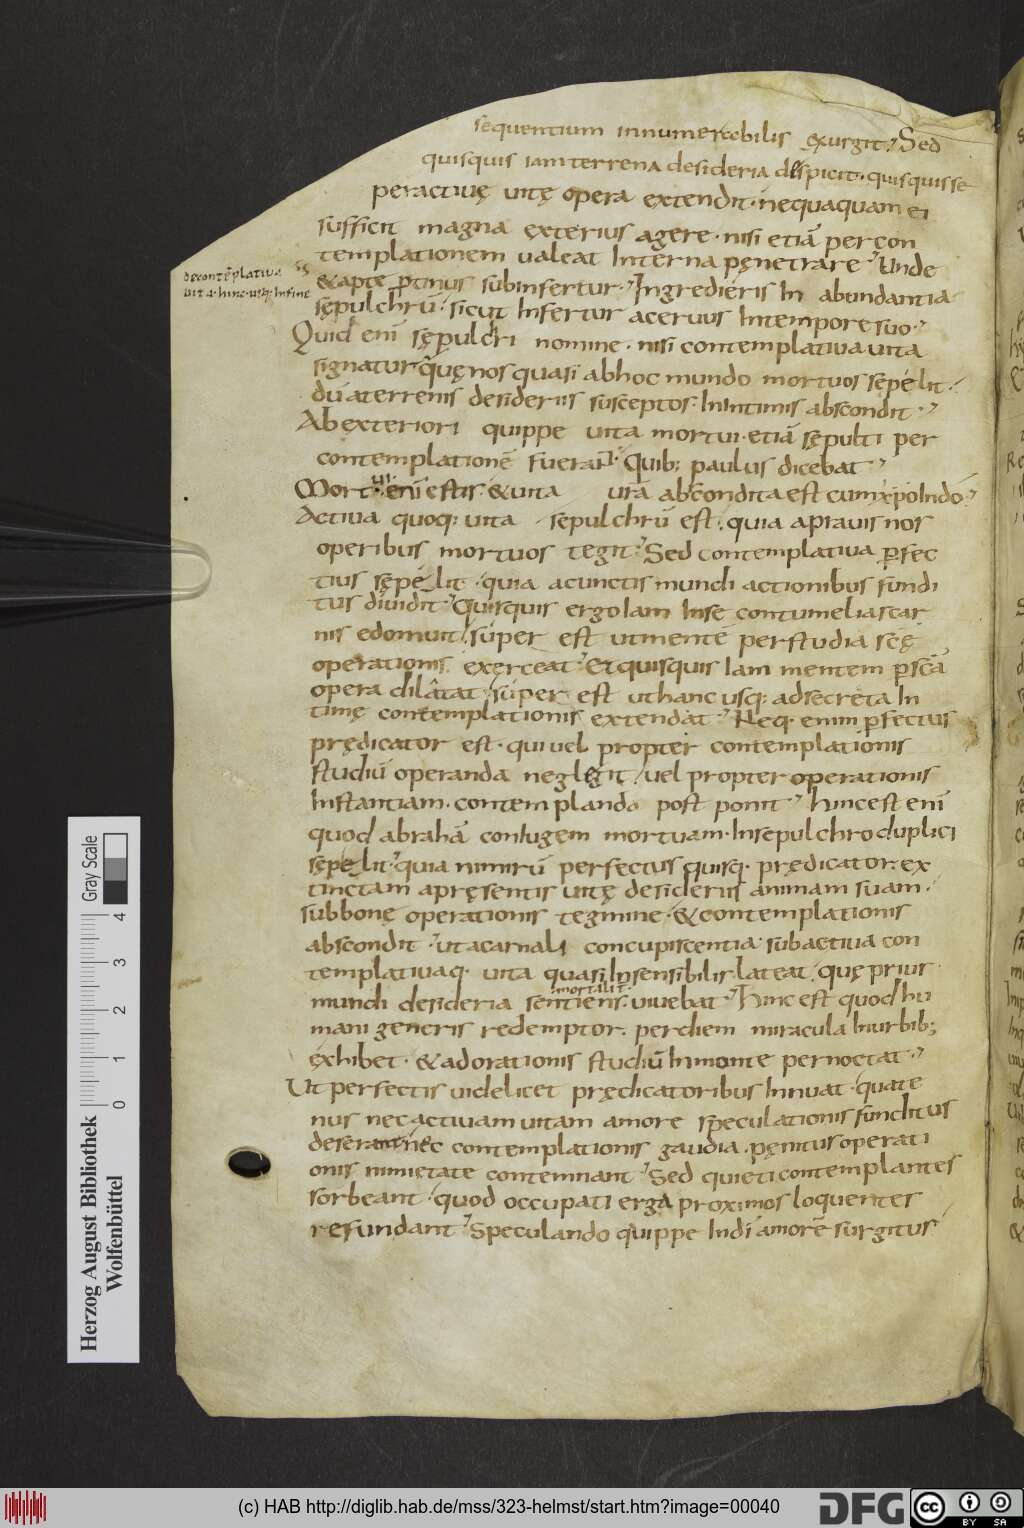 sequentium innumerabilis exurgit; Sed
quisquis iam terrena desideria despicit · quisquis se
per activę vitę opera extendit · nequaquam ei
sufficit magna exterius agere · nisi etiā per con
templationem valeat Interna pęnetrare; Unde
de contēplativa
vita · hinc usq; In finē
& apte protinus subinfertur; Ingredieris In abundantia
sępulchrū · sicut Infertur acervus In tempore suo;
Quid enī sępulchri nomine · nisi contemplativa vita
signatur quę nos quasi ab hoc mundo mortuos sepelit ·
dū a terrenis desideriis susceptos · In Intimis abscondit ·
Ab exteriori quippe vita mortui · etiā sępulti per
contemplationē fuerant · Quib; paulus dicebat ·
Mortui enī estis · & vita vr̄a abscondita est cum xp̄o In dō ·
Activa quoq; vita sepulchrū est · quia a pravis nos
operibus mortuos tegit; Sed contemplativa perfec
tius sępelit · quia a cunctis mundi actionibus fundi
tus dividit; Quisquis ergo Iam In se contumelias car
nis edomuit · super est ut mentē per studia scę
operationis exerceat; Et quisquis Iam mentem per scā
opera dilatat · super est ut hanc usq; ad secreta In
timę contemplationis extendat; Neq · enim perfectus
prędicator est · qui vel propter contemplationis
studiū operanda neglegit · vel propter operationis
Instantiam · contemplanda post ponit; hinc est enī
quod abrahā coniugem mortuam · In sepulchro duplici
sępelit; quia nimirū perfectus quisq · prędicator · ex
tinctam a pręsentis vitę desideriis animam suam ·
sub bonę operationis tegmine · & contemplationis
abscondit; ut a carnali concupiscentia · sub activa con
templativaq · vita quasi Insensibilis lateat · quę prius
mundi desideria sentiens · mortalit · vivebat; hinc est quod hu
mani generis redemptor · per diem miracula In urbib;
exhibet · & ad orationis studiū In monte pernoctat ·
Ut perfectis videlicet prędicatoribus Innuat · quate
nus nec activam vitam amore speculationis funditus
deserant · nec contemplationis gaudia · pęnitus operati
onis nimietate contemnant; Sed quieti contemplantes
sorbeant · quod occupati erga proximos loquentes
refundant; Speculando quippe In di amorē surgitur
Gray Scale
0 1 2 3 4
Herzog August Bibliothek
Wolfenbüttel
(c) HAB http://diglib.hab.de/mss/323-helmst/start.htm?image=00040
DFG
cc BY SA